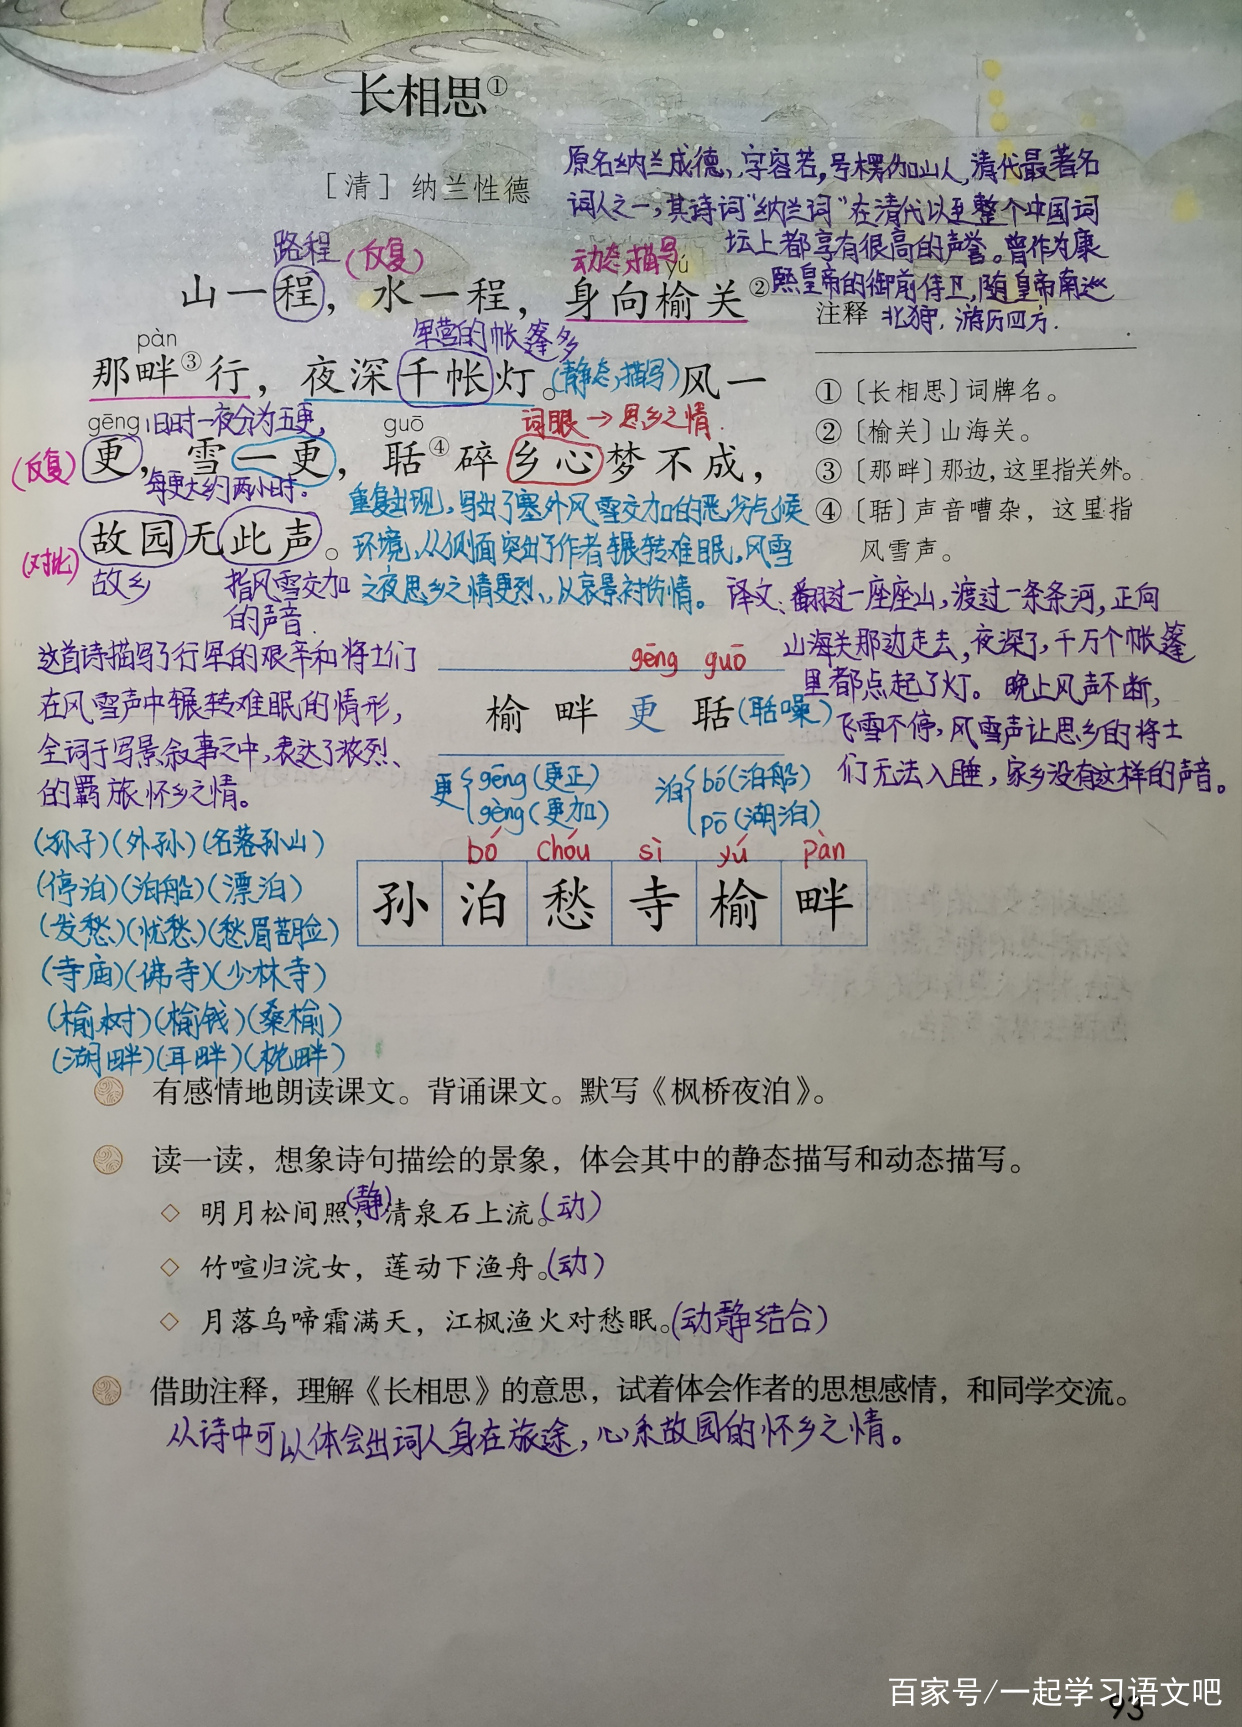 长相思①
[清] 纳兰性德
原名纳兰成德,字容若,号楞伽山人,清代最著名
词人之一,其诗词“纳兰词”在清代以至整个中国词
坛上都享有很高的声誉。曾作为康
熙皇帝的御前侍卫,随皇帝南巡
北狩,游历四方.
路程 (反复) 动态描写 yú
山一程，水一程，身向榆关②
pàn 军营的帐篷多
那畔③行，夜深千帐灯。(静态描写)风一
gēng 旧时一夜分为五更, guō 词眼→思乡之情.
(反复) 更，雪一更，聒④碎乡心梦不成，
每更大约两小时.
(对比) 故园无此声。
故乡 指风雪交加
的声音.
重复出现,写出了塞外风雪交加的恶劣气候
环境,从侧面突出了作者辗转难眠,风雪
之夜思乡之情更烈、从哀景衬伤情。
注释
①〔长相思〕词牌名。
②〔榆关〕山海关。
③〔那畔〕那边，这里指关外。
④〔聒〕声音嘈杂，这里指
风雪声。
译文:翻过一座座山,渡过一条条河,正向
山海关那边走去,夜深了,千万个帐篷
里都点起了灯。晚上风声不断,
飞雪不停,风雪声让思乡的将士
们无法入睡,家乡没有这样的声音。
这首诗描写了行军的艰辛和将士们
在风雪声中辗转难眠的情形,
全词于写景叙事之中,表达了浓烈、
的羁旅怀乡之情。
gēng guō
榆 畔 更 聒(聒噪)
更{gēng(更正)
gèng(更加)
泊{bó(泊船)
pō(湖泊)
(孙子)(外孙)(名落孙山)
(停泊)(泊船)(漂泊)
(发愁)(忧愁)(愁眉苦脸)
(寺庙)(佛寺)(少林寺)
(榆树)(榆钱)(桑榆)
(湖畔)(耳畔)(枕畔)
bó chóu sì yú pàn
孙 泊 愁 寺 榆 畔
有感情地朗读课文。背诵课文。默写《枫桥夜泊》。
读一读，想象诗句描绘的景象，体会其中的静态描写和动态描写。
◇ 明月松间照，(静)清泉石上流。(动)
◇ 竹喧归浣女，莲动下渔舟。(动)
◇ 月落乌啼霜满天，江枫渔火对愁眠。(动静结合)
借助注释，理解《长相思》的意思，试着体会作者的思想感情，和同学交流。
从诗中可以体会出词人身在旅途,心系故园的怀乡之情。
百家号/一起学习语文吧
93